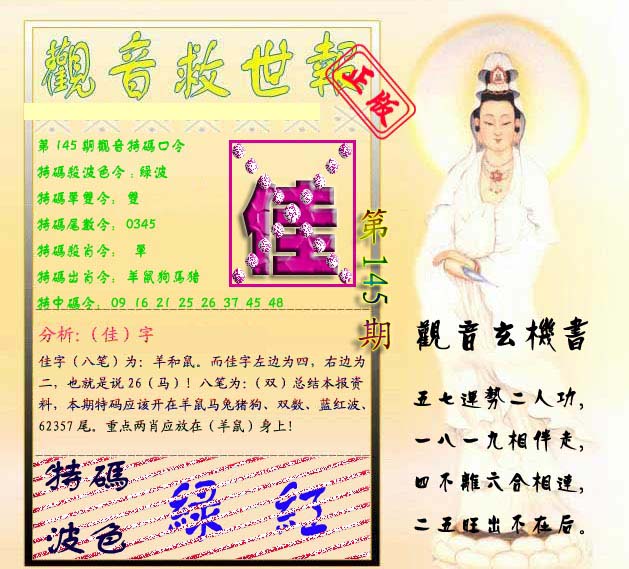 觀音救世報
正版
第145期觀音特碼口令
特碼殺波色令:綠波
特碼單雙令: 雙
特碼尾數令: 0345
特碼殺肖令: 單
特碼出肖令: 羊鼠狗馬豬
特中碼令: 09 16 21 25 26 37 45 48
佳
第145期
分析:(佳)字
佳字(八笔)为:羊和鼠。而佳字左边为四,右边为
二,也就是说26(马)!八笔为:(双)总结本报资
料,本期特码应该开在羊鼠马兔猪狗、双数、蓝红波、
62357尾。重点两肖应放在(羊鼠)身上!
特碼
波色
綠 紅
觀音玄機書
五七運勢二人功,
一八一九相伴走,
四不離六合相連,
二五旺出不在后。